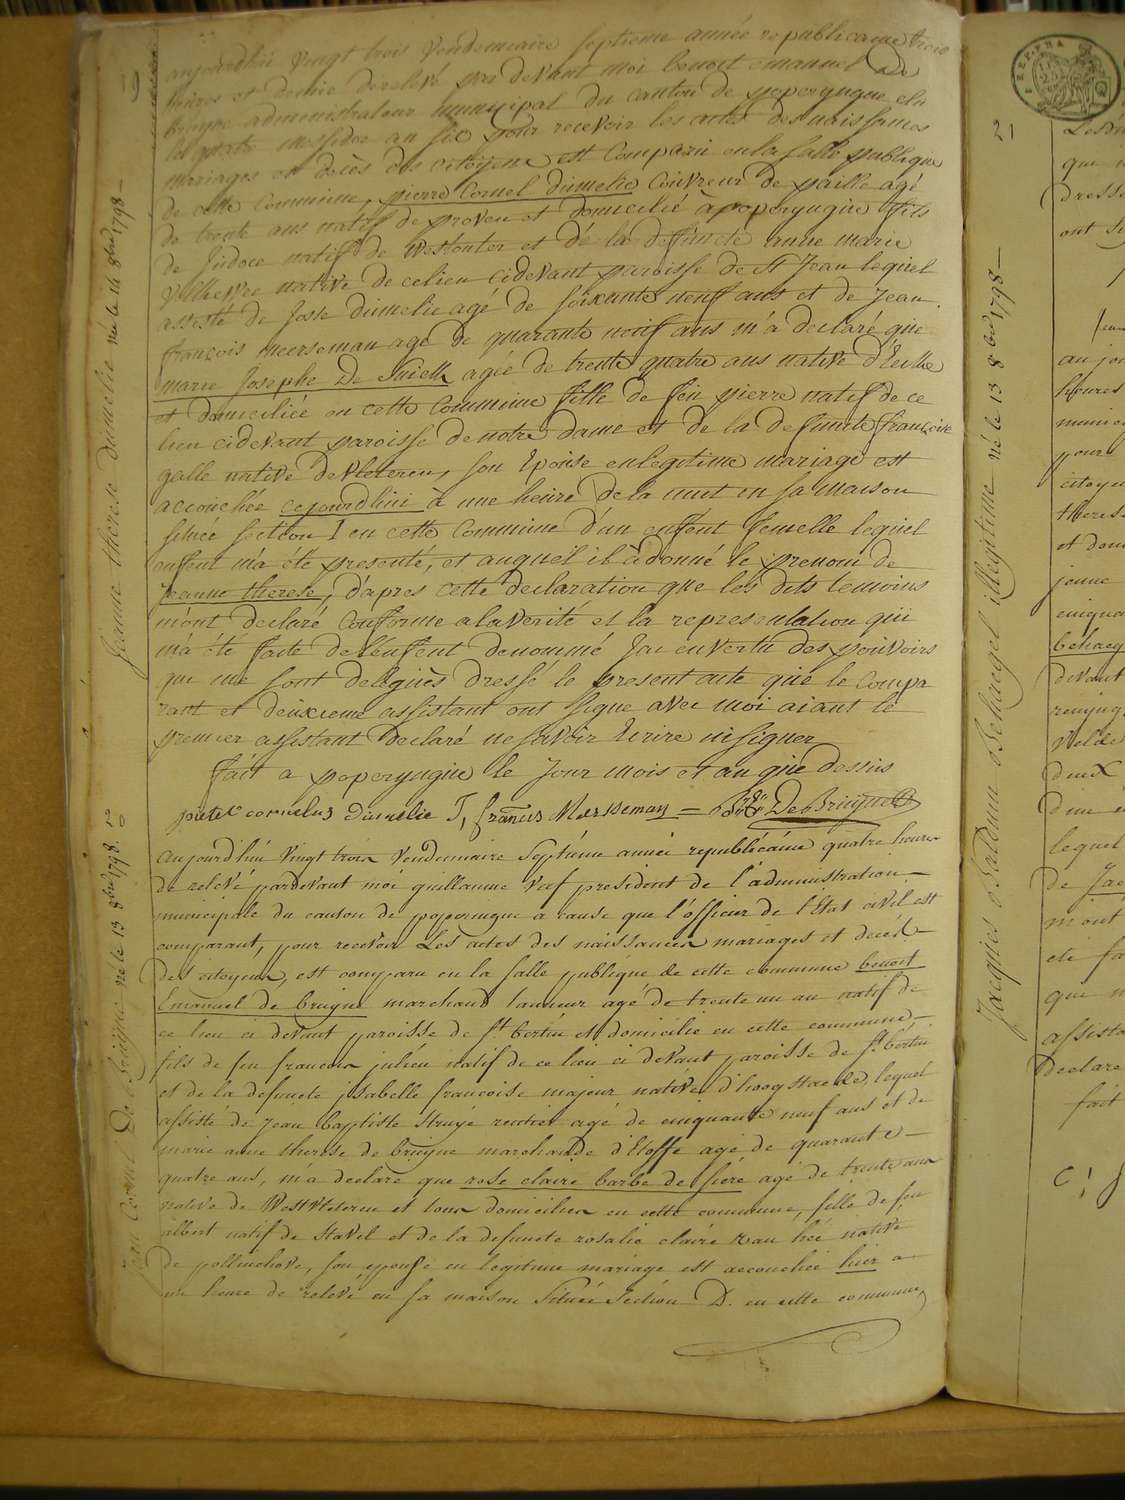 19
Jeanne therese dúmelie née le 14 8bre 1798 —
aujourdhúi vingt trois vendemiaire septieme année republicaine trois
heúres et demie de relevé par devant moi benoit emanuel De
bruyne administrateur municipal du canton de poperyngue elú
le quatre messidor an six pour recevoir les actes des naissances
mariages et decès des citoyens est comparú en la salle publique
de cette commune, pierre Cornel dúmelie coúvreur de paille agé
de trente ans natif de proven et domicilié à poperyngúe fils
de Júdoce natif de Westouter et de la deffuncte anne marie
native de ce lieu cidevant paroisse de St Jean lequel
assisté de Josse dúmelie agé de soixante neúf ans et de Jean
françois meerseman agé de quarante neúf ans m'a declaré que
marie Josephe De agée de trente quatre ans native d'
et domiciliée en cette commune fille de feú pierre natif de ce
lieu cidevant paroisse de notre dame et de la defuncte françoise
galle native de vleteren, son Epoúse en legitime mariage est
accoúchée cejourdhúi à une heúre de la nuit en sa maison
sitúée section I en cette commune d'un enfent femelle lequel
enfent m'a été presenté, et auquel il à donné le prenom de
jeanne therese, d'apres cette declaration que les dits temoins
m'ont declaré conforme a la verité et la representation qui
m'a été faite de l'enfent denommé J'ai en vertú des poúvoirs
que me sont delegúés dressé le present acte qúe le compa
rant et deúxieme assistant ont signe avec moi aiant le
premier assistant declaré ne savoir ecrire ni signer
fait a poperyngúe le Jour mois et an qúe dessús
pieter cornelus Dumelie J, francis Meerseman = DeBruyne
Jean Cornel De Bruÿne né le 13 8bre 1798.
20
aujourd'húi vingt trois vendemiaire septieme année republicaine quatre heures
de relevé pardevant moi guillaume president de l'administration
municipale du canton de poperingue a cause que l'officier de l'Etat civil est
comparant, pour recevoir Les actes des naissances mariages et decés
des citoyens, est comparu en la salle publique de cette commune benoit
Emanuel de bruyne marchand tanneur agé de trente un an natif de
ce lieu ci devant paroisse de St bertin et domicilié en cette commune
fils de feu francois julien natif de ce lieu ci devant paroisse de St bertin
et de la defuncte isabelle francoise majeur native d'hoogstaede, lequel
assisté de Jean baptiste Struye rentier agé de cinquante neuf ans et de
marie anne therese de bruyne marchande d'Etoffe agé de quarante
quatre ans, m'a declaré que rose claire barbe de agé de trente ans
native de Westvleteren et tous domiciliés en cette commune, fille de feu
albert natif de Stavel et de la defuncte rosalie claire native
de pollinchove, son epouse en legitime mariage est accouchée hier a
une heure de relevé en sa maison Située Section D. en cette commune
REP. FRA
21
Jacques Baldum Behaegel illegitime né le 13 8bre 1798 —
que
dresse
ont
au jou
heures
pour
citoyen
et dom
jeune
behaeg
devant
deux
lequel
de Jac
m'ont
eté fa
que
assista
Declare
fait